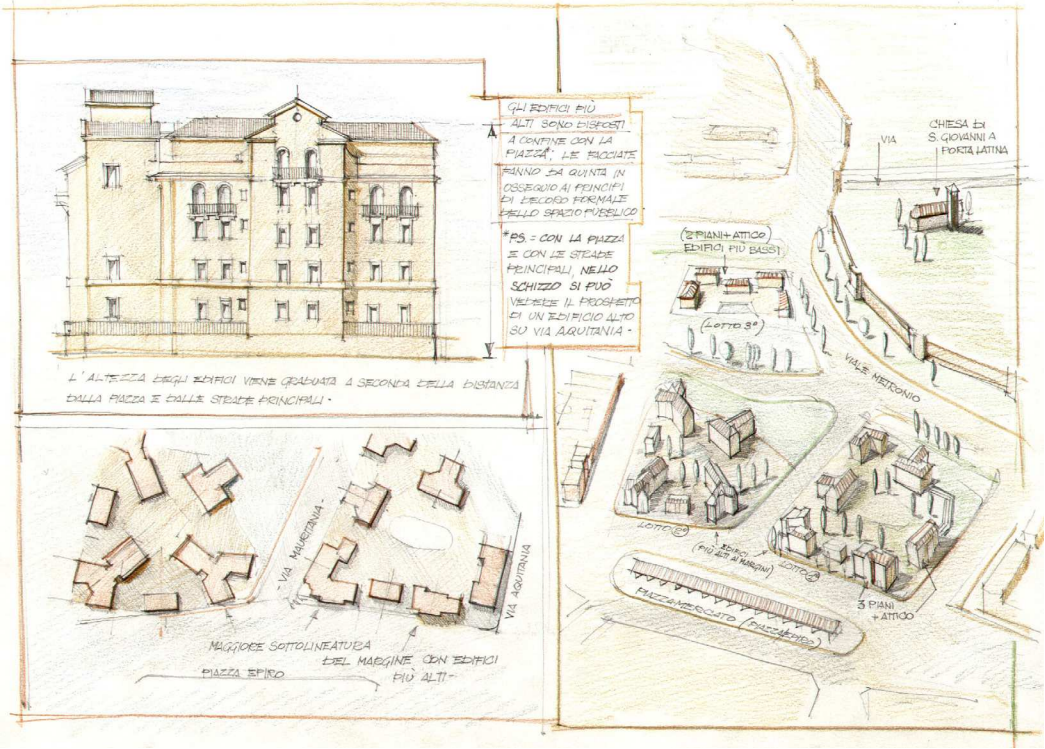 GLI EDIFICI PIÙ
ALTI SONO DISPOSTI
A CONFINE CON LA
PIAZZA*; LE FACCIATE
FANNO DA QUINTA IN
OSSEQUIO AI PRINCIPI
DI DECORO FORMALE
DELLO SPAZIO PUBBLICO.
*PS. = CON LA PIAZZA
E CON LE STRADE
PRINCIPALI, NELLO
SCHIZZO SI PUÒ
VEDERE IL PROSPETTO
DI UN EDIFICIO ALTO
SU VIA AQUITANIA.
L'ALTEZZA DEGLI EDIFICI VIENE GRADUATA A SECONDA DELLA DISTANZA
DALLA PIAZZA E DALLE STRADE PRINCIPALI.
VIA MAURITANIA
VIA AQUITANIA
MAGGIORE SOTTOLINEATURA
DEL MARGINE CON EDIFICI
PIÙ ALTI
PIAZZA EPIRO
VIA
CHIESA DI
S. GIOVANNI A
PORTA LATINA
(2 PIANI + ATTICO
EDIFICI PIÙ BASSI)
(LOTTO 3°)
VIALE METRONIO
LOTTO 2°
EDIFICI
(PIÙ ALTI AI MARGINI)
LOTTO
3 PIANI
+ ATTICO
PIAZZA MERCATO (PIAZZA EPIRO)